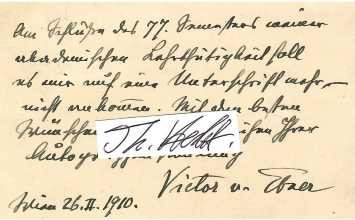 Am Schluße des 77. Semesters meiner
akademischen Lehrthätigkeit soll
es mir auf eine Unterschrift mehr
nicht ankommen. Mit den besten
Wünschen Ihrer
Th. Kocht.
Autogr
Victor v. Ebner
Wien 26.II.1910.